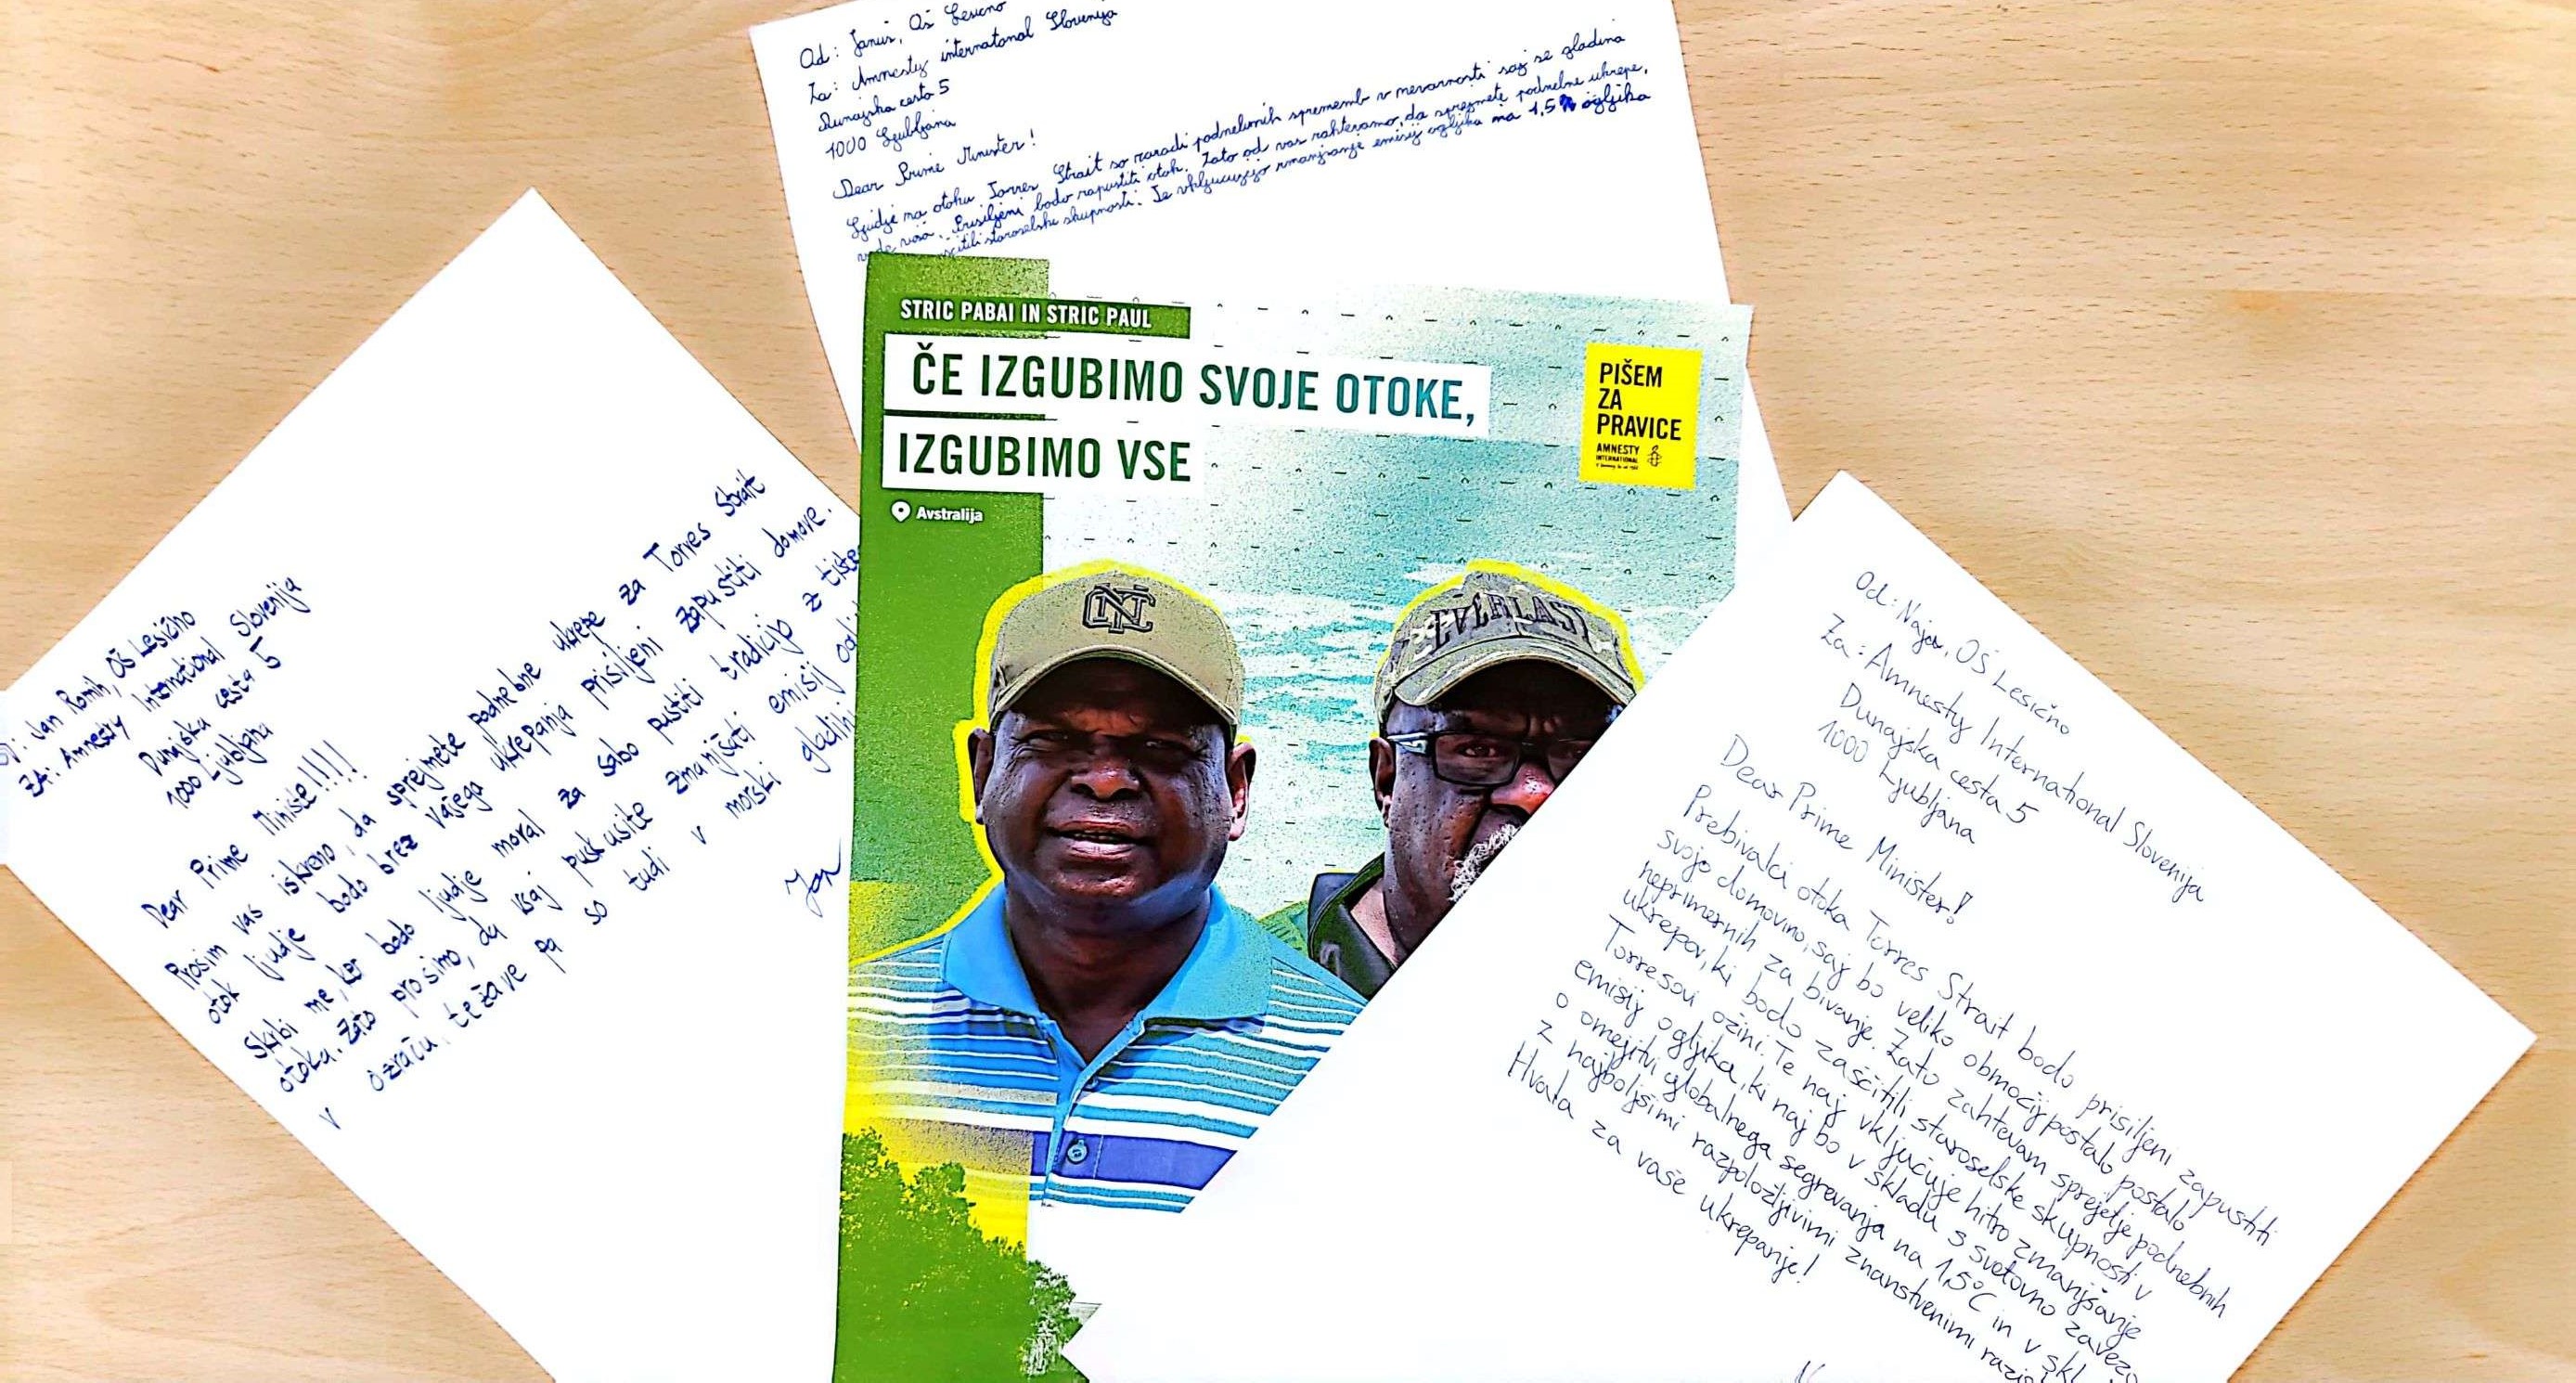 Od: Januš, Oš Lesično
Za: Amnesty internatonal Slovenija
Dunajska cesta 5
1000 Ljubljana
Dear Prime Minister!
Ljudje na otoku Torres Strait so zaradi podnebnih sprememb v nevarnosti saj se gladina
vode viša. Prisiljeni bodo zapustiti otok. Zato od vas zahtevamo, da sprejmete podnebne ukrepe,
staroselske skupnosti. Te vključujejo zmanjšanje emisij ogljika na 1,5 ogljika
STRIC PABAI IN STRIC PAUL
ČE IZGUBIMO SVOJE OTOKE,
IZGUBIMO VSE
Avstralija
PIŠEM
ZA
PRAVICE
AMNESTY
INTERNATIONAL
CN
EVERLAST
Jan Romih, OŠ Lesično
ZA: Amnesty International Slovenija
Dunajska cesta 5
1000 Ljubljana
Dear Prime Ministe!!!!!
Prosim vas iskreno, da sprejmete podnebne ukrepe za Torres Strait
otok ljudje bodo brez vašega ukrepanja prisiljeni zapustiti domove.
Skrbi me, ker bodo ljudje moral za sabo pustiti tradicijo z
otoka. Zato prosimo, da vsaj poskusite zmanjšati emisij
v ozračju, težave pa so tudi v morski gladini
Jan
Od: Naja, OŠ Lesično
Za: Amnesty International Slovenija
Dunajska cesta 5
1000 Ljubljana
Dear Prime Minister!
Prebivalci otoka Torres Strait bodo prisiljeni zapustiti
svojo domovino, saj bo veliko območij postalo postalo
neprimernih za bivanje. Zato zahtevam sprejetje podnebnih
ukrepov, ki bodo zaščitili staroselske skupnosti v
Torresovi ožini. Te naj vključuje hitro zmanjšanje
emisij ogljika, ki naj bo v skladu s svetovno zavezo
o omejitvi globalnega segrevanja na 1,5°C in v skl
z najboljšimi razpoložljivimi znanstvenimi
Hvala za vaše ukrepanje!